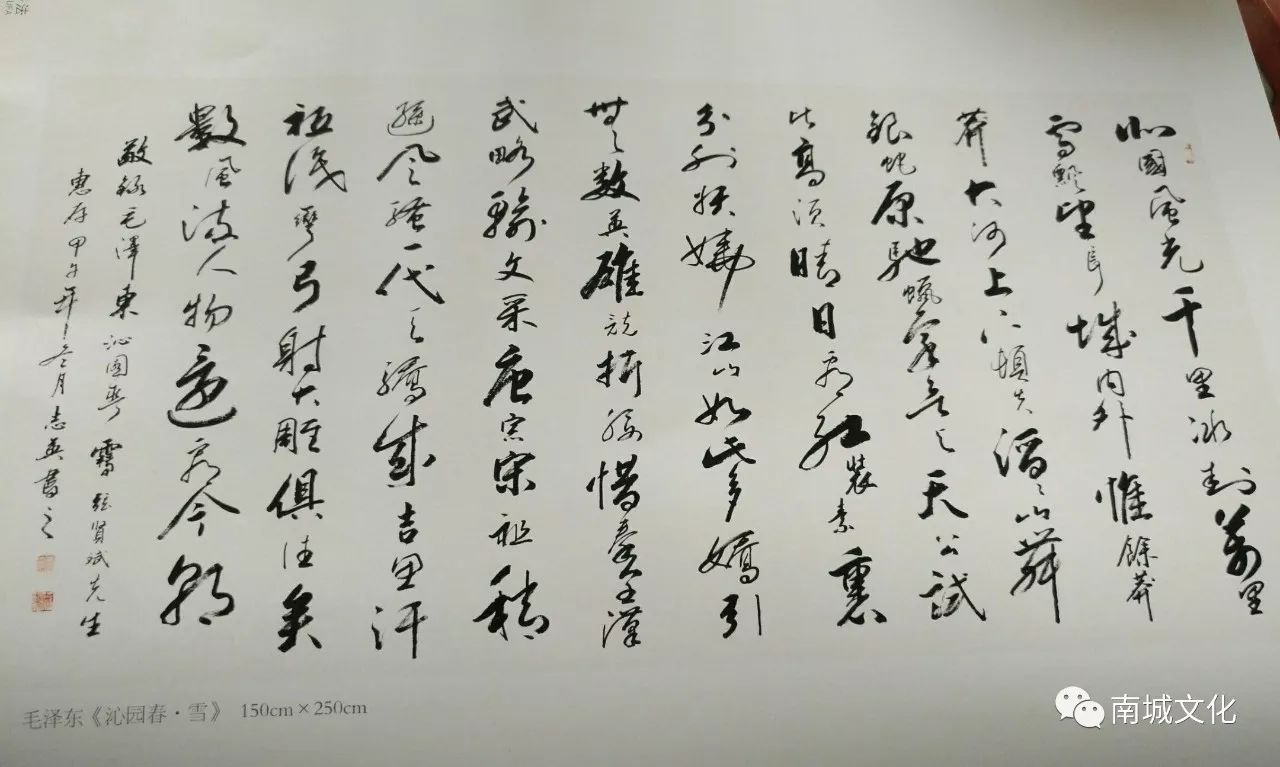 北國風光千里冰封萬里
雪飄望長城內外惟餘莽
莽大河上下頓失滔滔山舞
銀蛇原馳蠟象欲与天公試
比高須晴日看紅裝素裹
分外妖嬈江山如此多嬌引
無數英雄競折腰惜秦皇漢
武略輸文采唐宗宋祖稍
遜風騷一代天驕成吉思汗
祗識彎弓射大雕俱往矣
數風流人物還看今朝
敬錄毛澤東沁園春雪 賢斌先生
惠存甲午年冬月志英書之
毛泽东《沁园春·雪》 150cm×250cm
南城文化